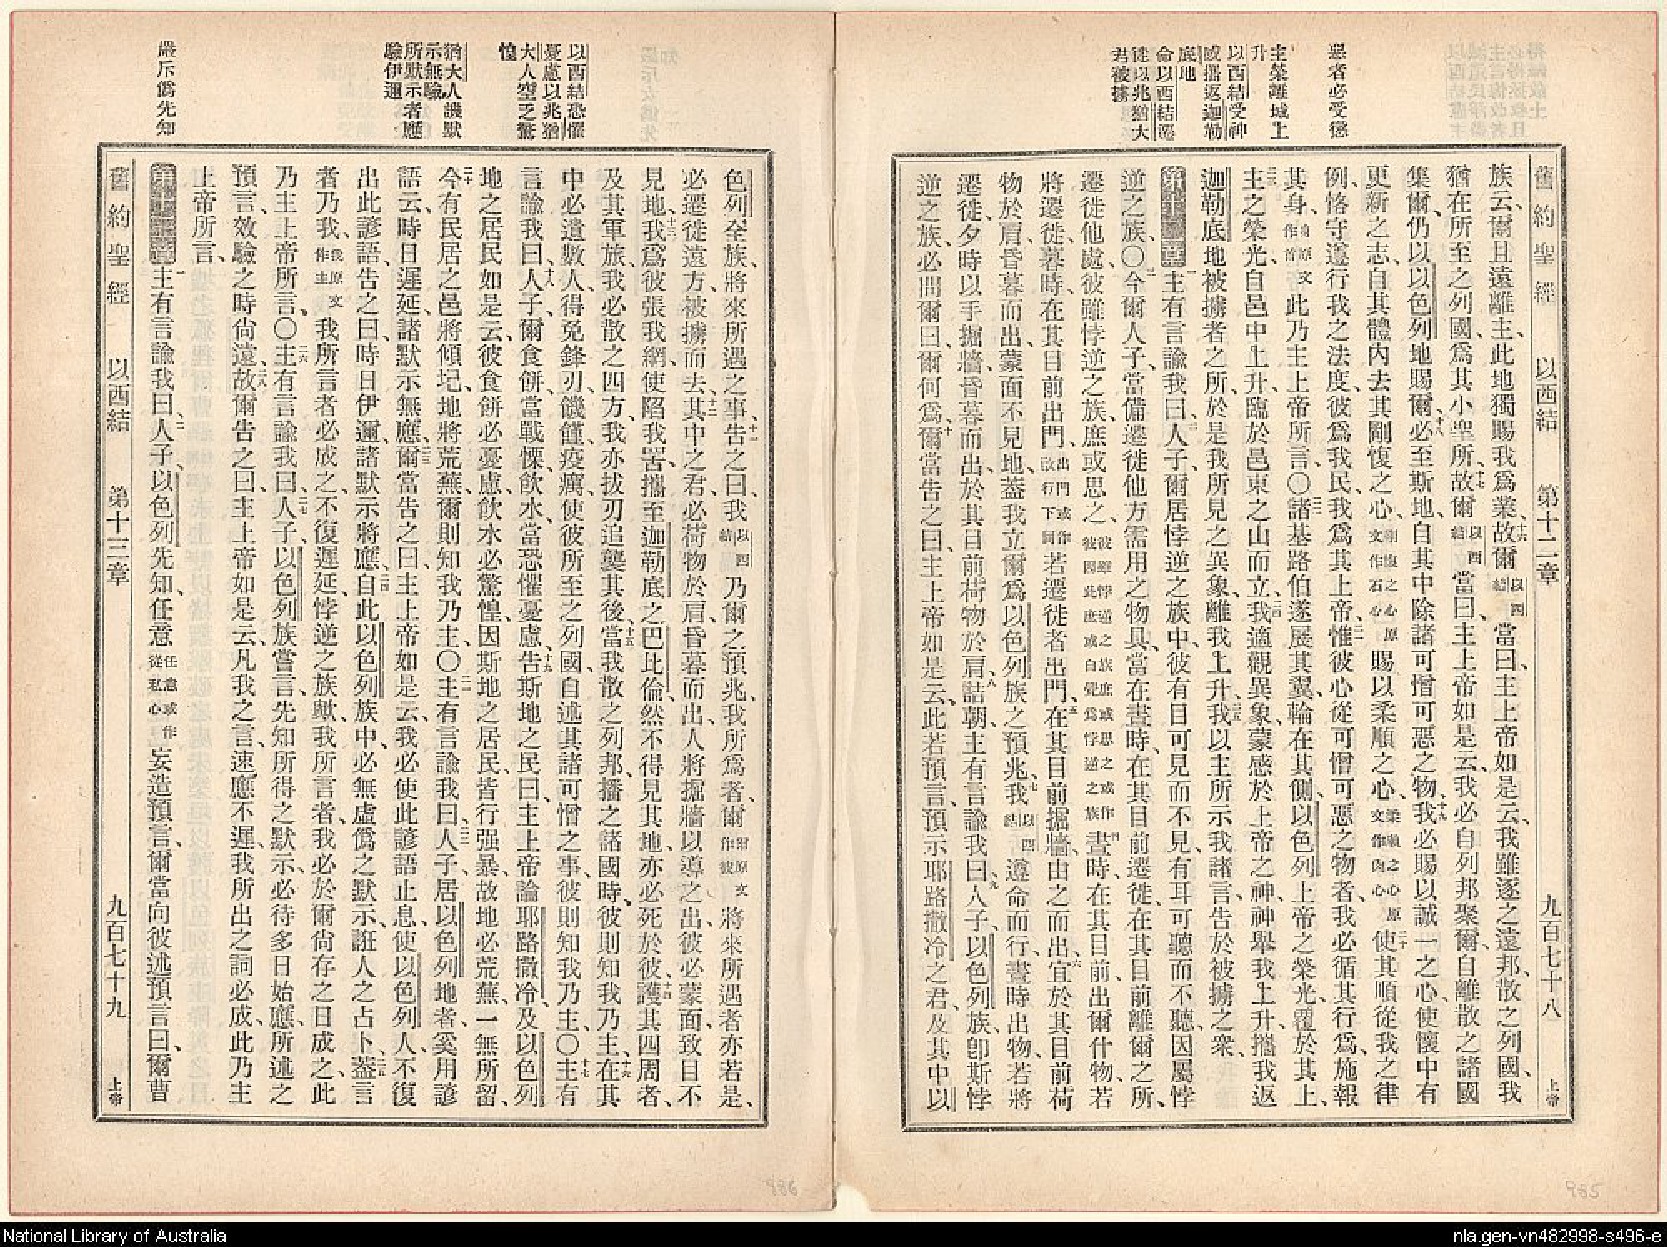 惡者必受懲
主榮離城上
升
以西結受神
感攜返迦勒
底地
命以西結遷
徙以兆猶大
君被擄
舊約聖經 以西結 第十二章 九百七十八 上帝
族、云、爾且遠離主、此地獨賜我爲業、故爾以西結當曰、主上帝如是云、我雖逐之遠邦、散之列國、我
猶在所至之列國、爲其小聖所、故爾以西結當曰、主上帝如是云、我必自列邦聚爾、自離散之諸國
集爾、仍以以色列地賜爾、必至斯地、自其中除諸可憎可惡之物、我必賜以誠一之心、使懷中有
更新之志、自其體內去其剛愎之心、剛愎之心原文作石心賜以柔順之心、柔順之心原文作肉心使其順從我之律
例、恪守遵行我之法度、彼爲我民、我爲其上帝、惟彼心從可憎可惡之物者、我必循其行爲、施報
其身、身原文作首此乃主上帝所言○諸基路伯遂展其翼、輪在其側、以色列上帝之榮光、覆於其上、
主之榮光自邑中上升、臨於邑東之山而立、我適觀異象、蒙感於上帝之神、神舉我上升、攜我返
迦勒底地、被擄者之所、於是我所見之異象、離我上升、我以主所示我諸言、告於被擄之衆、
第十二章 主有言諭我曰、人子、爾居悖逆之族中、彼有目可見而不見、有耳可聽而不聽、因屬悖
逆之族、○今爾人子、當備遷徙他方需用之物具、當在晝時、在其目前遷徙、在其目前離爾之所、
遷徙他處、彼雖悖逆之族、庶或思之、彼雖悖逆之族庶或思之或作彼因此庶或自覺爲悖逆之族晝時在其目前、出爾什物、若
將遷徙、暮時在其目前出門、出門或作啟行下同若遷徙者出門、在其目前掘牆、由之而出、宜於其目前荷
物於肩、昏暮而出、蒙面不見地、蓋我立爾爲以色列族之預兆、我以西結遵命而行、晝時出物、若將
遷徙、夕時以手掘牆、昏暮而出、於其目前荷物於肩、詰朝、主有言諭我曰、人子、以色列族、卽斯悖
逆之族、必問爾曰、爾何爲、爾當告之曰、主上帝如是云、此若預言、預示耶路撒冷之君、及其中以
以西結恐懼
憂慮以兆猶
大人空乏驚
惶
猶大人譏默
示無驗
所默示者應
驗伊邇
嚴斥僞先知
色列全族、將來所遇之事、告之曰、我以西結乃爾之預兆、我所爲者、爾爾原文作彼將來所遇者亦若是、
必遷徙遠方、被擄而去、其中之君、必荷物於肩、昏暮而出、人將掘牆以導之出、彼必蒙面、致目不
見地、我爲彼張我網、使陷我罟、攜至迦勒底之巴比倫、然不得見其地、亦必死於彼、護其四周者、
及其軍旅、我必散之四方、我亦拔刃追襲其後、當我散之列邦、播之諸國時、彼則知我乃主、在其
中必遺數人、得免鋒刃饑饉疫癘、使彼所至之列國、自述其諸可憎之事、彼則知我乃主、○主有
言諭我曰、人子、爾食餅、當戰慄、飲水、當恐懼憂慮、告斯地之民曰、主上帝論耶路撒冷及以色列
地之居民、如是云、彼食餅必憂慮、飲水必驚惶、因斯地之居民、皆行强暴、故地必荒蕪、一無所留、
今有民居之邑將傾圮、地將荒蕪、爾則知我乃主、○主有言諭我曰、人子、居以色列地者、奚用諺
語云、時日遲延、諸默示無應、爾當告之曰、主上帝如是云、我必使此諺語止息、使以色列人不復
出此諺語、告之曰、時日伊邇、諸默示將應、自此以色列族中、必無虛僞之默示、誑人之占卜、蓋言
者乃我、我原文作主我所言者必成之、不復遲延、悖逆之族歟、我所言者、我必於爾尚存之日成之、此
乃主上帝所言、○主有言諭我曰、人子、以色列族嘗言、先知所得之默示、必待多日始應、所述之
預言、效驗之時尙遠、故爾告之曰、主上帝如是云、凡我之言、速應不遲、我所出之詞必成、此乃主
上帝所言、
第十三章 主有言諭我曰、人子、以色列先知、任意任意或作從私心妄造預言、爾當向彼述預言曰、爾曹
舊約聖經 以西結 第十三章 九百七十九 上帝
986
985
National Library of Australia
nla.gen-vn482998-s496-e